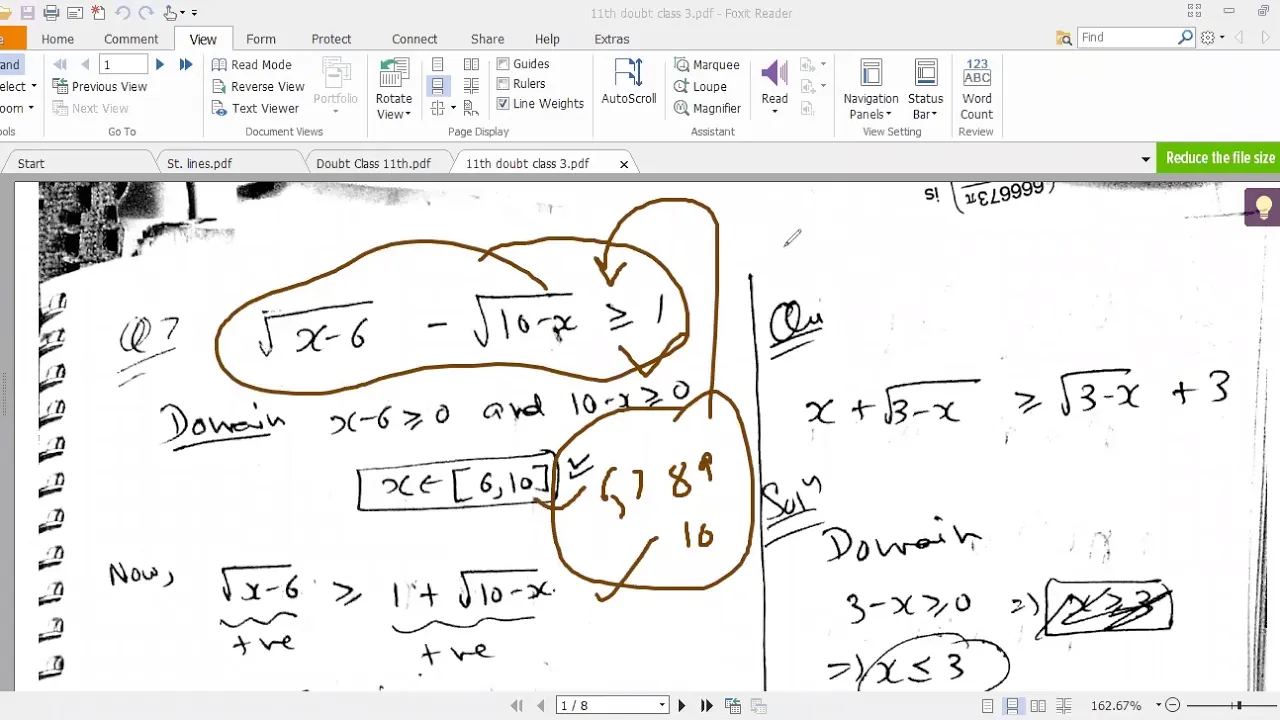 11th doubt class 3.pdf - Foxit Reader
Home Comment View Form Protect Connect Share Help Extras
Find
1
Previous View
Next View
Go To
Read Mode
Reverse View
Text Viewer
Portfolio
Document Views
Rotate View
Guides
Rulers
Line Weights
Page Display
AutoScroll
Marquee
Loupe
Magnifier
Assistant
Read
Navigation Panels
Status Bar
View Setting
123
ABC
Word Count
Review
Start
St. lines.pdf
Doubt Class 11th.pdf
11th doubt class 3.pdf
Reduce the file size
666673π is
Q7
√x-6 - √10-x ≥ 1
Domain x-6≥0 and 10-x≥0
x∈[6,10]
6, 7 8 9
10
Now, √x-6 ≥ 1 + √10-x
+ve +ve
Qui
x + √3-x ≥ √3-x + 3
Solⁿ
Domain
3-x≥0 => x≥3
=> x≤3
1 / 8
162.67%